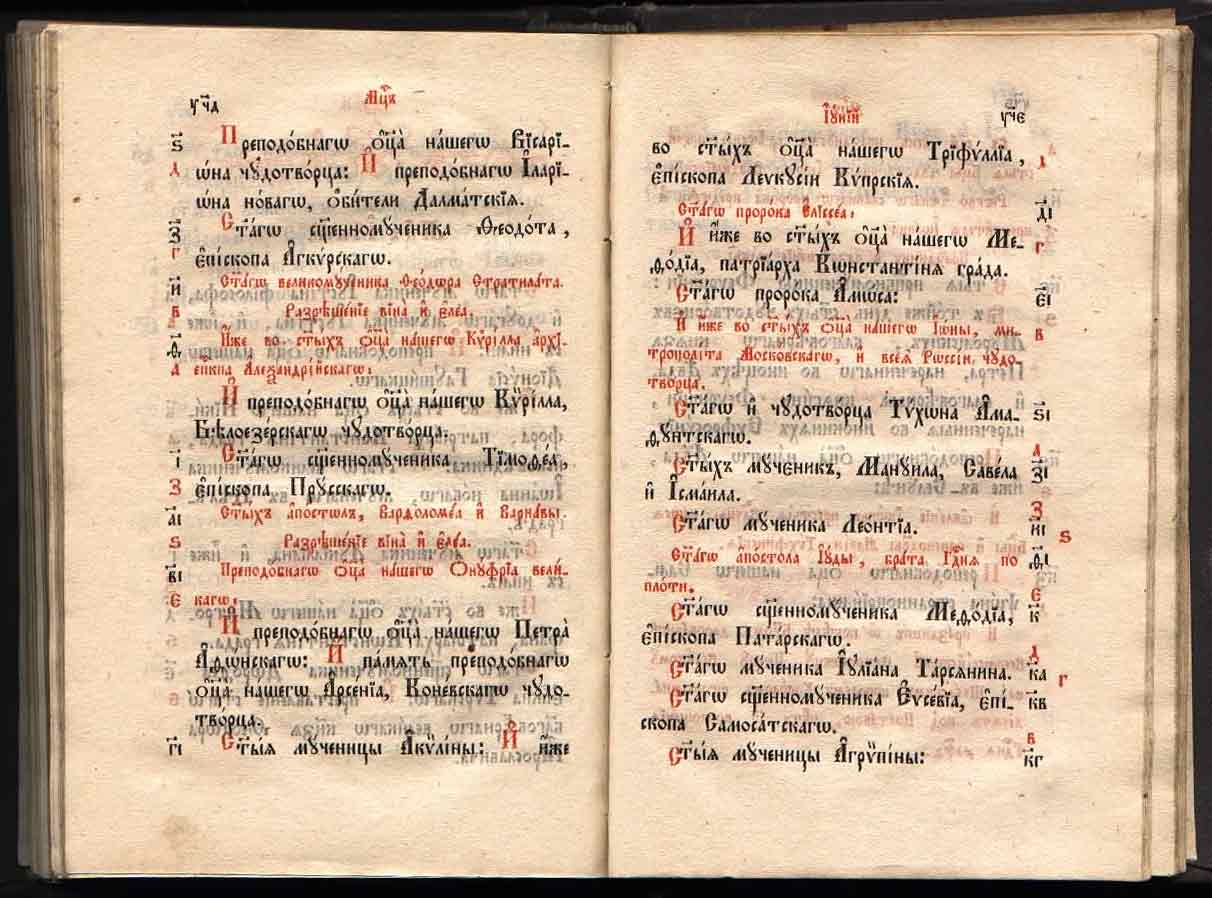 УЧД МЦЪ
Ѕ Преподо́бнагѡ ѻ҆ц҃а̀ на́шегѡ Висарі-
Д ѡ́на чꙋдотво́рца: И҆ преподо́бнагѡ І҆ларі-
ѡ́на но́вагѡ, ѻ҆би́тели Далма́тскїѧ.
З Ст҃а́гѡ сщ҃енномꙋ́ченика Ѳеодо́та,
Г є҆пі́скопа А҆гкѵ́рскагѡ.
И Ст҃а́гѡ великомꙋ́ченика Ѳео́дѡра Стратила́та.
В Разрѣше́нїе вїна̀ и҆ є҆ле́а.
Ѳ И҆́же во ст҃ы́хъ ѻ҆ц҃а̀ на́шегѡ Кѷрі́лла а҆рхі-
А еп҃кпа А҆леѯандрі́йскагѡ:
И҆ преподо́бнагѡ ѻ҆ц҃а̀ на́шегѡ Кѷрі́лла,
Бѣлоезе́рскагѡ чꙋдотво́рца:
І Ст҃а́гѡ сщ҃енномꙋ́ченика Тїмоѳе́а,
З є҆пі́скопа Прꙋ́сскагѡ.
АІ Ст҃ы́хъ а҆по́столъ, Варѳоломе́а и҆ Варна́вы.
Ѕ Разрѣше́нїе вїна̀ и҆ є҆ле́а.
ВІ Преподо́бнагѡ ѻ҆ц҃а̀ на́шегѡ Ѻ҆нꙋ́фрїа вели́-
Є кагѡ:
И҆ преподо́бнагѡ ѻ҆ц҃а̀ на́шегѡ Петра̀
А҆ѳѡ́нскагѡ: И҆ па́мѧть преподо́бнагѡ
ѻ҆ц҃а̀ на́шегѡ А҆рсе́нїа, Коне́вскагѡ чꙋдо-
тво́рца.
ГІ Ст҃ы́ѧ мꙋ́ченицы А҆кѷлі́ны: И҆ и҆́же
І҆ꙋ́нїй УЧЕ
во ст҃ы́хъ ѻ҆ц҃а̀ на́шегѡ Трїфѵ́ллїа, Д
є҆пі́скопа Леѵкꙋсі́и Кѵ́прскїѧ.
Ст҃а́гѡ проро́ка Є҆лїссе́а: ДІ
И҆ и҆́же во ст҃ы́хъ ѻ҆ц҃а̀ на́шегѡ Ме- Г
ѳо́дїа, патрїа́рха Кѡнстанті́нѧ гра́да.
Ст҃а́гѡ проро́ка А҆мѡ́са: ЕІ
И҆ и҆́же во ст҃ы́хъ ѻ҆ц҃а̀ на́шегѡ І҆ѡ́ны, ми- В
трополі́та Моско́вскагѡ, и҆ всеѧ̀ Рѡссі́и, чꙋдо-
тво́рца.
Ст҃а́гѡ и҆ чꙋдотво́рца Тѵ́хѡна А҆ма- ЅІ
ѳꙋ́нтскагѡ. А
Ст҃ы́хъ мꙋ́ченикъ, Манꙋи́ла, Саве́ла ЗІ
и҆ І҆сма́ила. З
Ст҃а́гѡ мꙋ́ченика Лео́нтїа. ИІ Ѕ
Ст҃а́гѡ а҆по́стола І҆ꙋ́ды, бра́та Гд҃нѧ по ѲІ
пло́ти. Е
Ст҃а́гѡ сщ҃енномꙋ́ченика Меѳо́дїа, К
є҆пі́скопа Пата́рскагѡ. Д
Ст҃а́гѡ мꙋ́ченика І҆ꙋлїа́на Тарсѧ́нина. КА Г
Ст҃а́гѡ сщ҃енномꙋ́ченика Е҆ѵсе́вїа, є҆пі- КВ
скопа Самоса́тскагѡ. В
Ст҃ы́ѧ мꙋ́ченицы А҆грѷпі́ны: КГ